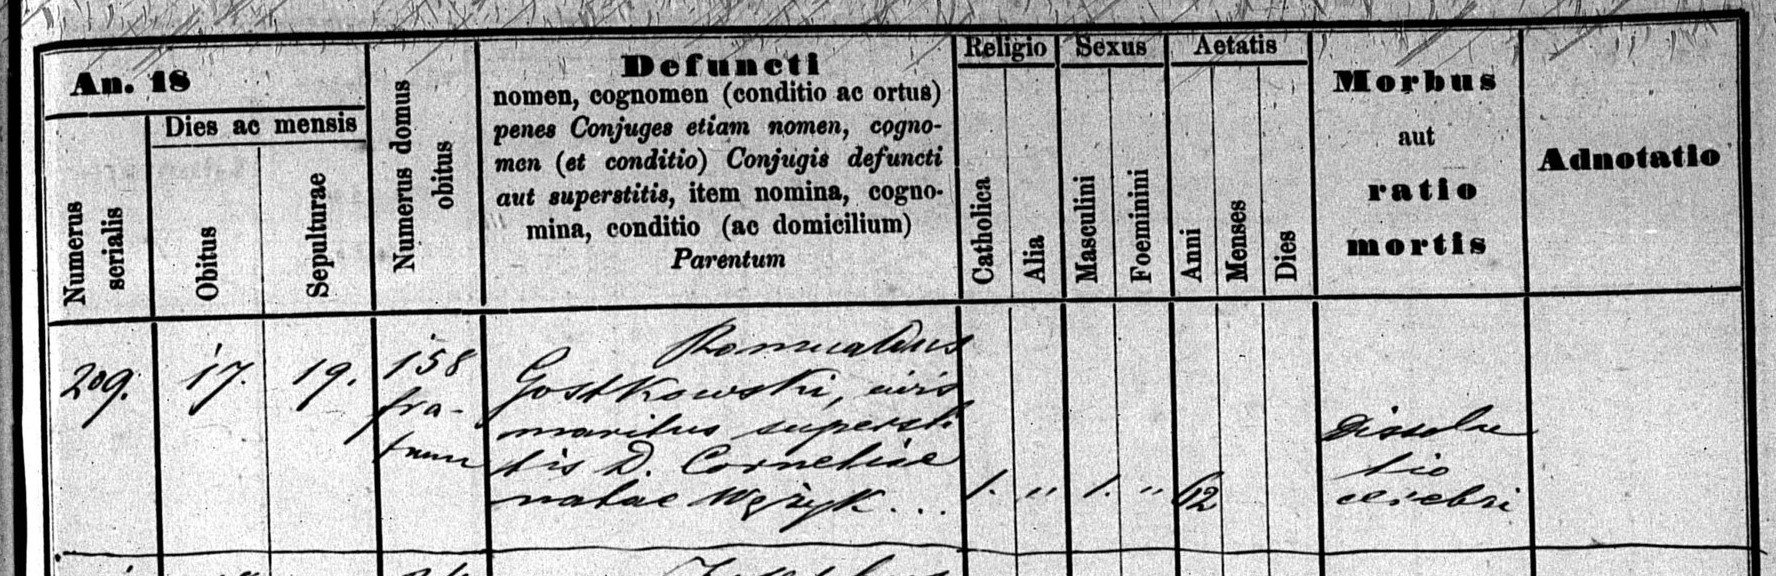 An. 18
Numerus serialis
Dies ac mensis
Obitus
Sepulturae
Numerus domus obitus
Defuncti
nomen, cognomen (conditio ac ortus)
penes Conjuges etiam nomen, cogno-
men (et conditio) Conjugis defuncti
aut superstitis, item nomina, cogno-
mina, conditio (ac domicilium)
Parentum
Religio
Catholica
Alia
Sexus
Masculini
Foeminini
Aetatis
Anni
Menses
Dies
Morbus
aut
ratio
mortis
Adnotatio
209.
17.
19.
158
fra-
trum
Romualdus
Gostkowski, civis
maritus supersti
tis D. Corneliae
natae Wężyk...
1. " 1. " 62
Dissolu
tio
cerebri